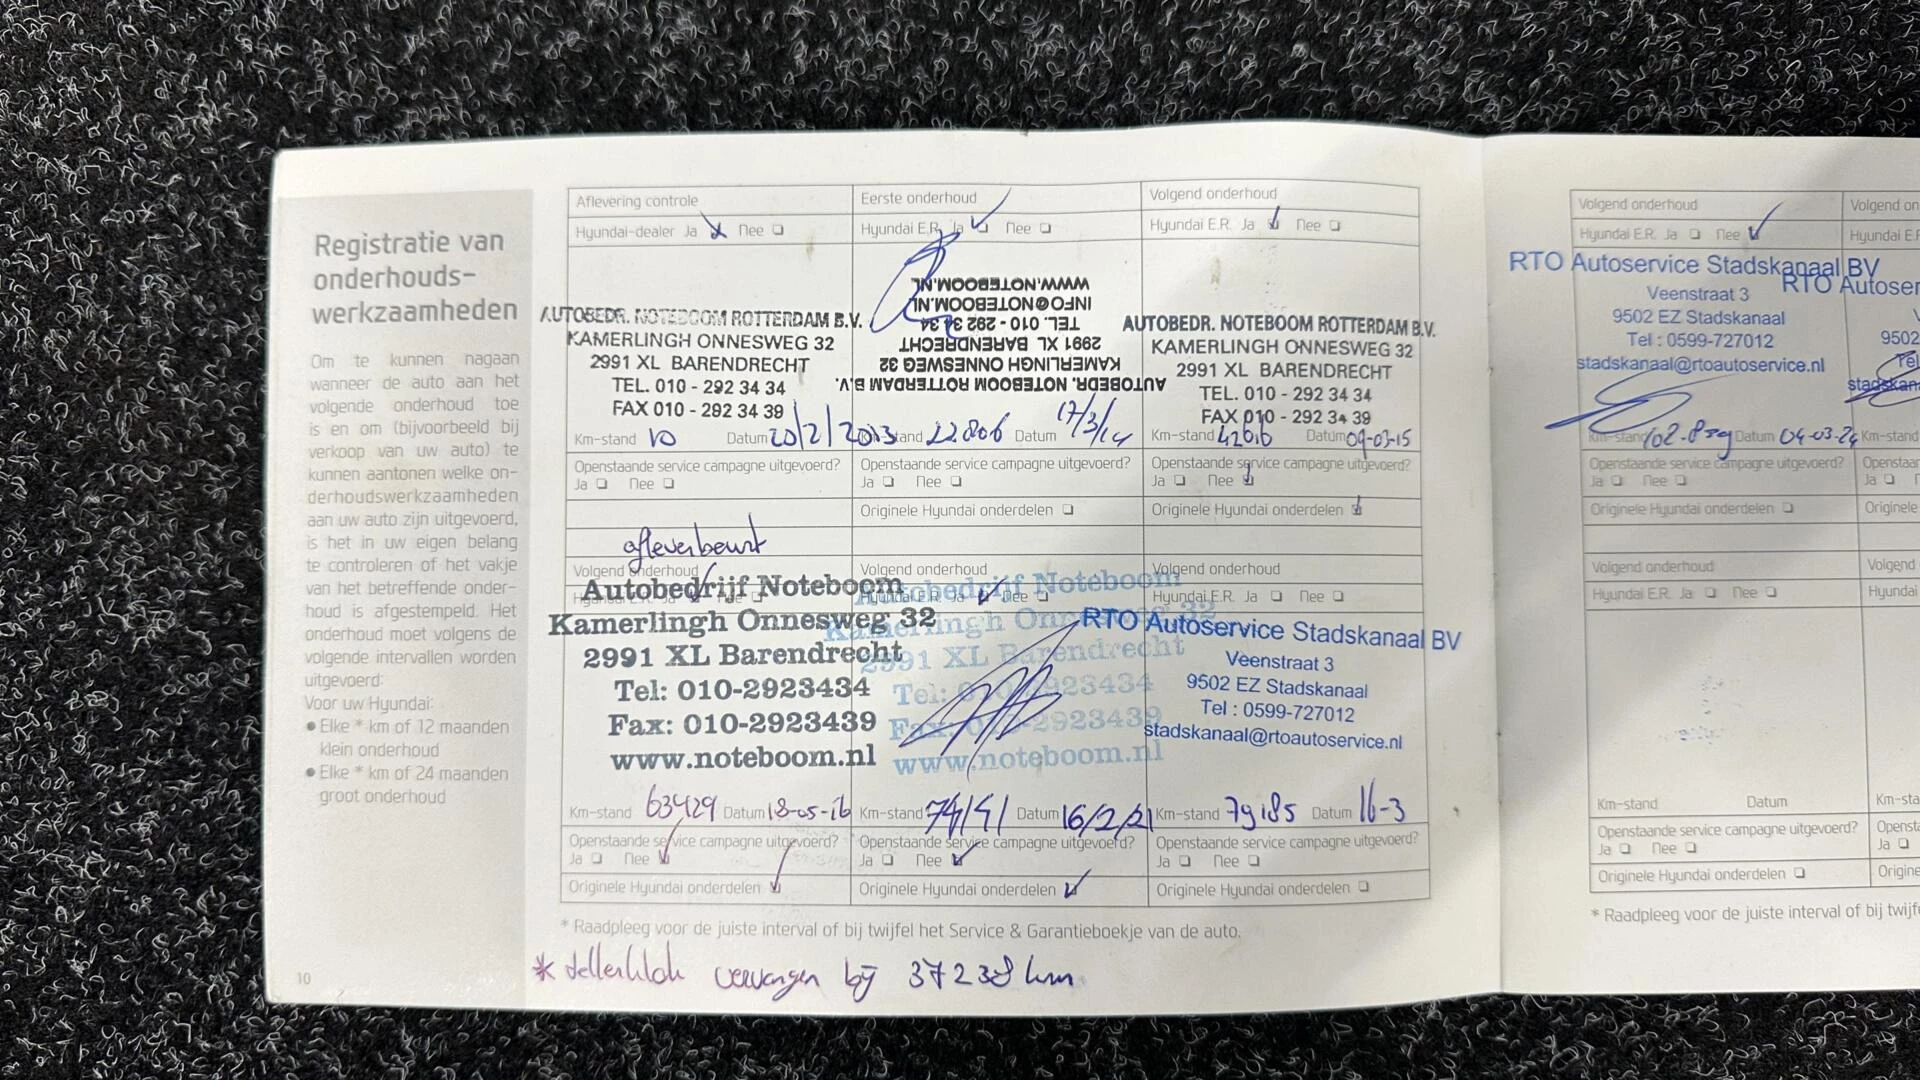 Registratie van
onderhouds-
werkzaamheden
Om te kunnen nagaan
wanneer de auto aan het
volgende onderhoud toe
is en om (bijvoorbeeld bij
verkoop van uw auto) te
kunnen aantonen welke on-
derhoudswerkzaamheden
aan uw auto zijn uitgevoerd,
is het in uw eigen belang
te controleren of het vakje
van het betreffende onder-
houd is afgestempeld. Het
onderhoud moet volgens de
volgende intervallen worden
uitgevoerd:
Voor uw Hyundai:
● Elke * km of 12 maanden
klein onderhoud
● Elke * km of 24 maanden
groot onderhoud
10
Aflevering controle
Hyundai-dealer Ja Nee
AUTOBEDR. NOTEBOOM ROTTERDAM B.V.
KAMERLINGH ONNESWEG 32
2991 XL BARENDRECHT
TEL. 010 - 292 34 34
FAX 010 - 292 34 39
Km-stand 10 Datum 20/2/2013
Openstaande service campagne uitgevoerd?
Ja Nee
afleverbeurt
Eerste onderhoud
Hyundai E.R. Ja Nee
AUTOBEDR. NOTEBOOM ROTTERDAM B.V.
KAMERLINGH ONNESWEG 32
2991 XL BARENDRECHT
TEL. 010 - 292 34 34
INFO@NOTEBOOM.NL
WWW.NOTEBOOM.NL
Km-stand 22806 Datum 17/3/14
Openstaande service campagne uitgevoerd?
Ja Nee
Originele Hyundai onderdelen
Volgend onderhoud
Hyundai E.R. Ja Nee
AUTOBEDR. NOTEBOOM ROTTERDAM B.V.
KAMERLINGH ONNESWEG 32
2991 XL BARENDRECHT
TEL. 010 - 292 34 34
FAX 010 - 292 34 39
Km-stand Datum 09-03-15
Openstaande service campagne uitgevoerd?
Ja Nee
Originele Hyundai onderdelen
Volgend onderhoud
Hyundai E.R. Ja Nee
Autobedrijf Noteboom
Kamerlingh Onnesweg 32
2991 XL Barendrecht
Tel: 010-2923434
Fax: 010-2923439
www.noteboom.nl
Km-stand 63429 Datum 18-05-16
Openstaande service campagne uitgevoerd?
Ja Nee
Originele Hyundai onderdelen
Volgend onderhoud
Hyundai E.R. Ja Nee
Autobedrijf Noteboom
Kamerlingh Onnesweg 32
2991 XL Barendrecht
Tel: 010-2923434
Fax: 010-2923439
www.noteboom.nl
Km-stand Datum 16/2/21
Openstaande service campagne uitgevoerd?
Ja Nee
Originele Hyundai onderdelen
Volgend onderhoud
Hyundai E.R. Ja Nee
RTO Autoservice Stadskanaal BV
Veenstraat 3
9502 EZ Stadskanaal
Tel : 0599-727012
stadskanaal@rtoautoservice.nl
Km-stand 79185 Datum 16-3
Openstaande service campagne uitgevoerd?
Ja Nee
Originele Hyundai onderdelen
* Raadpleeg voor de juiste interval of bij twijfel het Service & Garantieboekje van de auto.
* tellerklok vervangen bij 37238 km
Volgend onderhoud
Hyundai E.R. Ja Nee
RTO Autoservice Stadskanaal BV
Veenstraat 3
9502 EZ Stadskanaal
Tel : 0599-727012
stadskanaal@rtoautoservice.nl
Km-stand 102.839 Datum 04-03-24
Openstaande service campagne uitgevoerd?
Ja Nee
Originele Hyundai onderdelen
Volgend onderhoud
Hyundai E.R. Ja Nee
Km-stand Datum
Openstaande service campagne uitgevoerd?
Ja Nee
Originele Hyundai onderdelen
Volgend on
Hyundai E.F
RTO Autoser
9502
Tel
stadskan
Km-stand
Openstaa
Ja
Originele
Volgend
Hyundai
Km-sta
Openst
Ja
Origine
* Raadpleeg voor de juiste interval of bij twijf